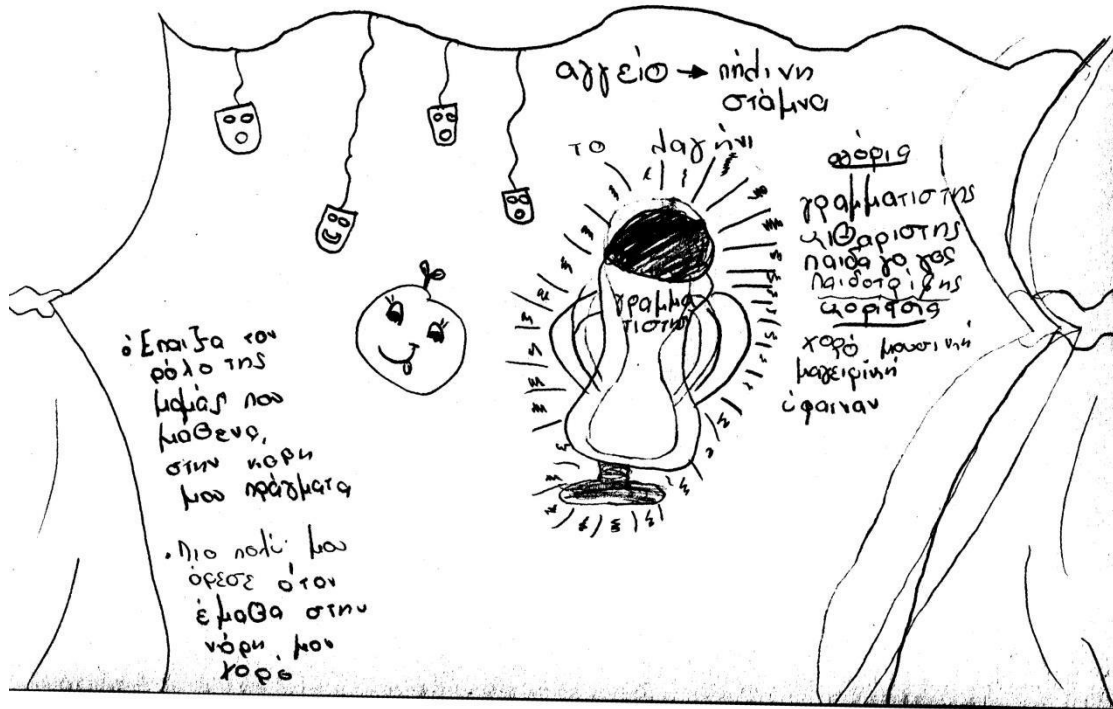 αγγείο → πήλινη
στάμνα
το λαγήνι
αγόρια
γραμματιστης
κιθαριστης
παιδαγογος
παιδοτρίβης
κορίτσια
χορό μουσικη
μαγειρική
ύφαιναν
γραμμα
τιστης
Έπαιξα τον
ρόλο της
μαμάς που
μάθενα,
στην κορη
μου πράγματα
• Πιο πολύ μου
άρεσε όταν
έμαθα στην
κόρη μου
χορό